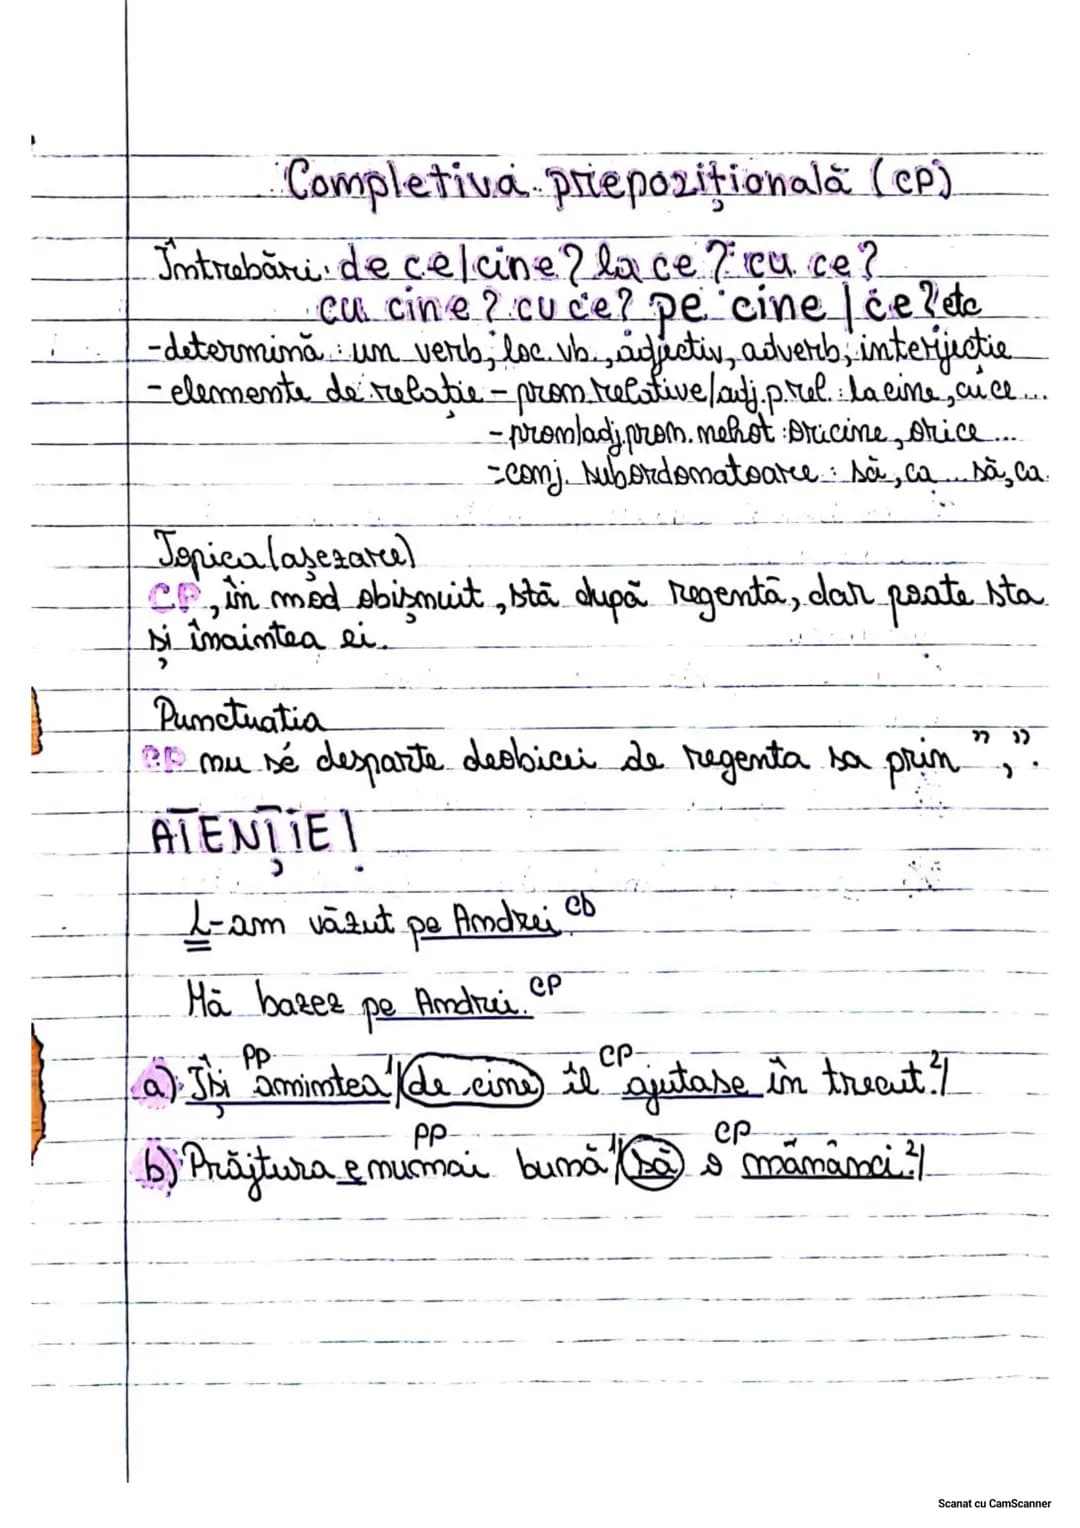 Completivă prepozițională (CP)
Întrebări: de ce/cine? la ce? cu ce?
cu cine? cu ce? pe cine / ce? etc
-determină: un verb, loc. vb., adjectiv, adverb, interjectie
- elemente de relație - pron. relative/adj. p. rel.: la cine, cu ce...
- pron/adj. pron. nehot: oricine, orice...
- conj. subordonatoare: să, ca... să, ca.
Topica (așezare)
CP, în mod obișnuit, stă după regentă, dar poate sta
și înaintea ei.
Punctuatia
CP nu se desparte deobicei de regenta sa prin ",".
ATENȚIE!
L-am văzut pe Andrei. CD
Mă bazez pe Andrei. CP
PP CP
a) Își amintea 1/ de cine îl ajutase în trecut. 2/
PP CP
b) Prăjitura e numai bună 1/ să o mănânci. 2/
Scanat cu CamScanner